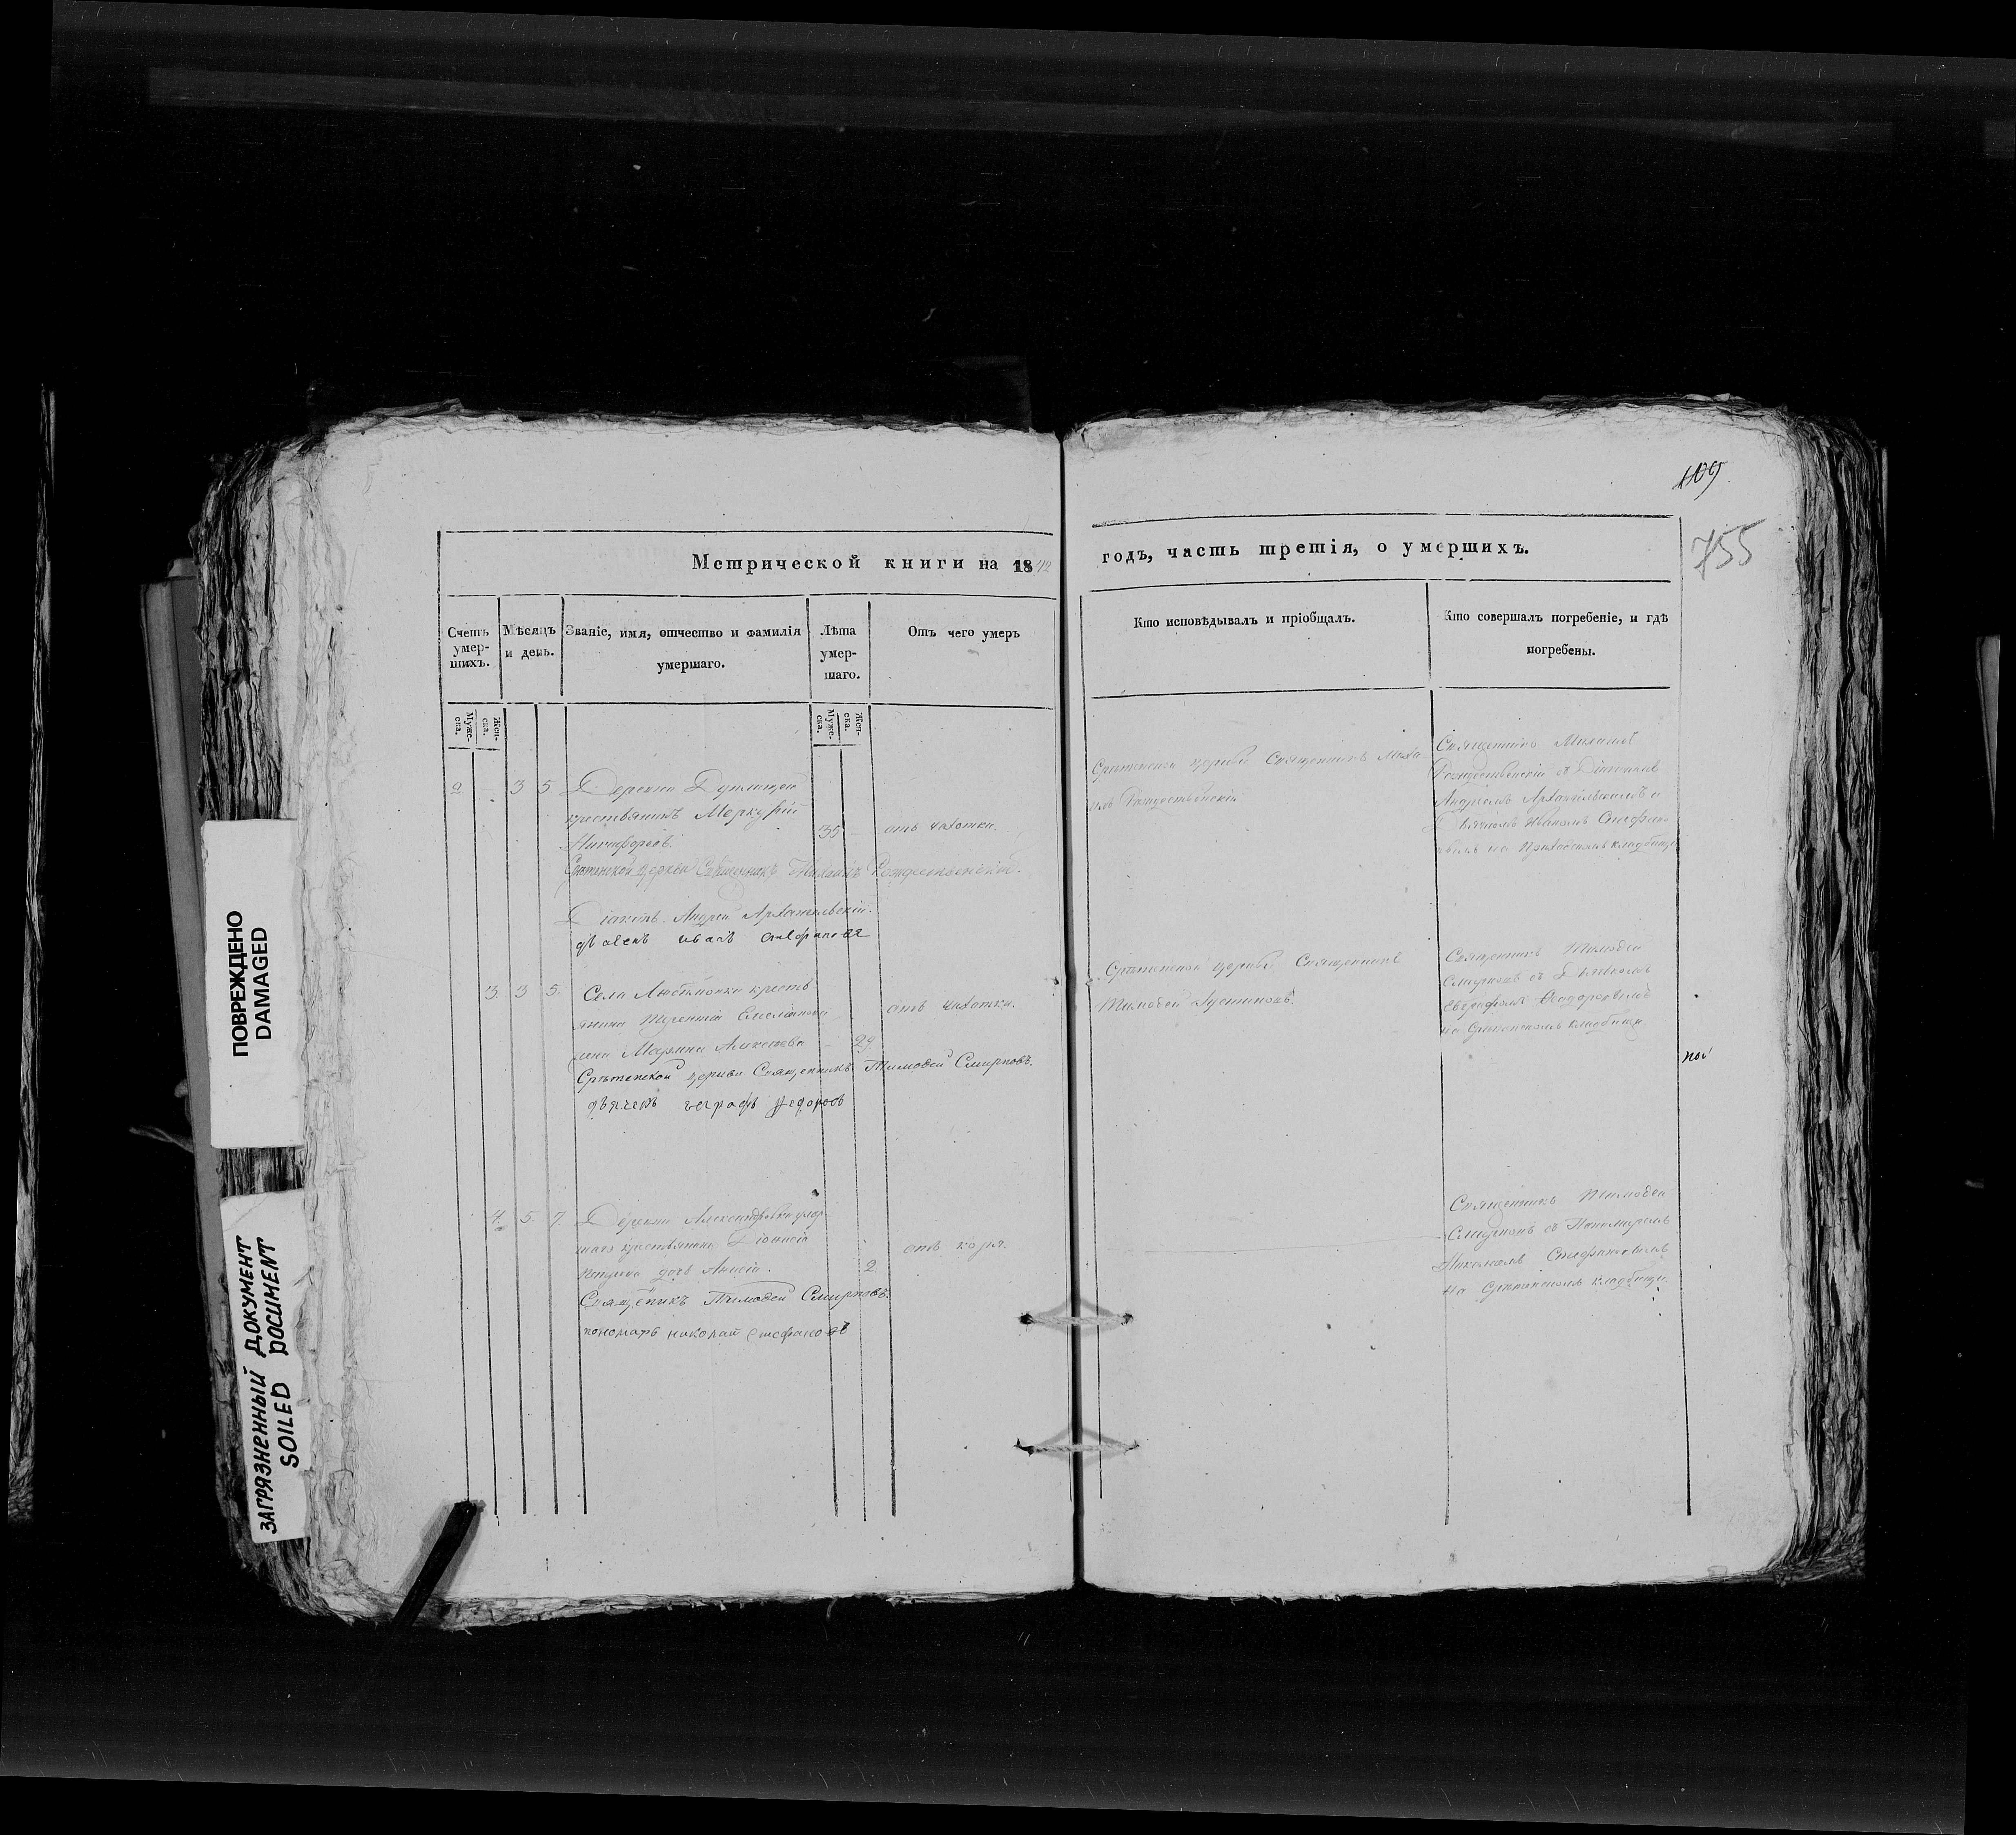 109
755
Метрической книги на 1842
годъ, часть третія, о умершихъ.
Счетъ умер-
шихъ.
Мѣсяцъ
и день.
Званіе, имя, отчество и фамилія
умершаго.
Лѣта
умер-
шаго.
Отъ чего умеръ
Кто исповѣдывалъ и пріобщалъ.
Кто совершалъ погребеніе, и гдѣ
погребены.
Муже-
ска.
Жен-
ска.
Муже-
ска.
Жен-
ска.
2 3 5 Деревни
крестьянинъ Меркурій
Никифоровъ
35 отъ чахотки.
Срѣтенской церкви Священникъ Михаилъ Рождественскій.
Діаконъ Андрей Архангельскій.
дьячекъ иванъ стефановъ
Срѣтенской церкви Священникъ Миха
илъ Рождественскій
Священникъ Михаилъ
Рождественскій съ Діакономъ
Андреемъ Архангельскимъ и
Дьячкомъ Иваномъ Стефано
вымъ на приходскомъ кладбище
3. 3 5. Села кресть
янина Терентія
жена Марина
29 отъ чахотки.
Срѣтенской церкви Священникъ Тимоѳей Смирновъ.
дьячекъ евграфъ федоровъ
Срѣтенской церкви Священникъ
Тимоѳей
Священникъ Тимоѳей
Смирновъ съ Дьячкомъ
Евграфомъ Ѳеодоровымъ
на Срѣтенскомъ кладбище
4. 5. 7. Деревни Александровки
крестьянина Діонисія
дочь Анисія.
2 отъ коря.
Священникъ Тимоѳей Смирновъ.
пономарь николай стефановъ
Священникъ Тимоѳей
Смирновъ съ Пономаремъ
Николаемъ Стефановымъ
на Срѣтенскомъ кладбище.
ПОВРЕЖДЕНО
DAMAGED
ЗАГРЯЗНЕННЫЙ ДОКУМЕНТ
SOILED DOCUMENT